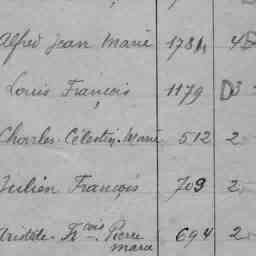 Alfred Jean Marie 1781 4
Louis François 1179 D3
Charles Célestin Marie 512 2
Julien François 709 2
Aristide Fçois Pierre 694 2
Marie